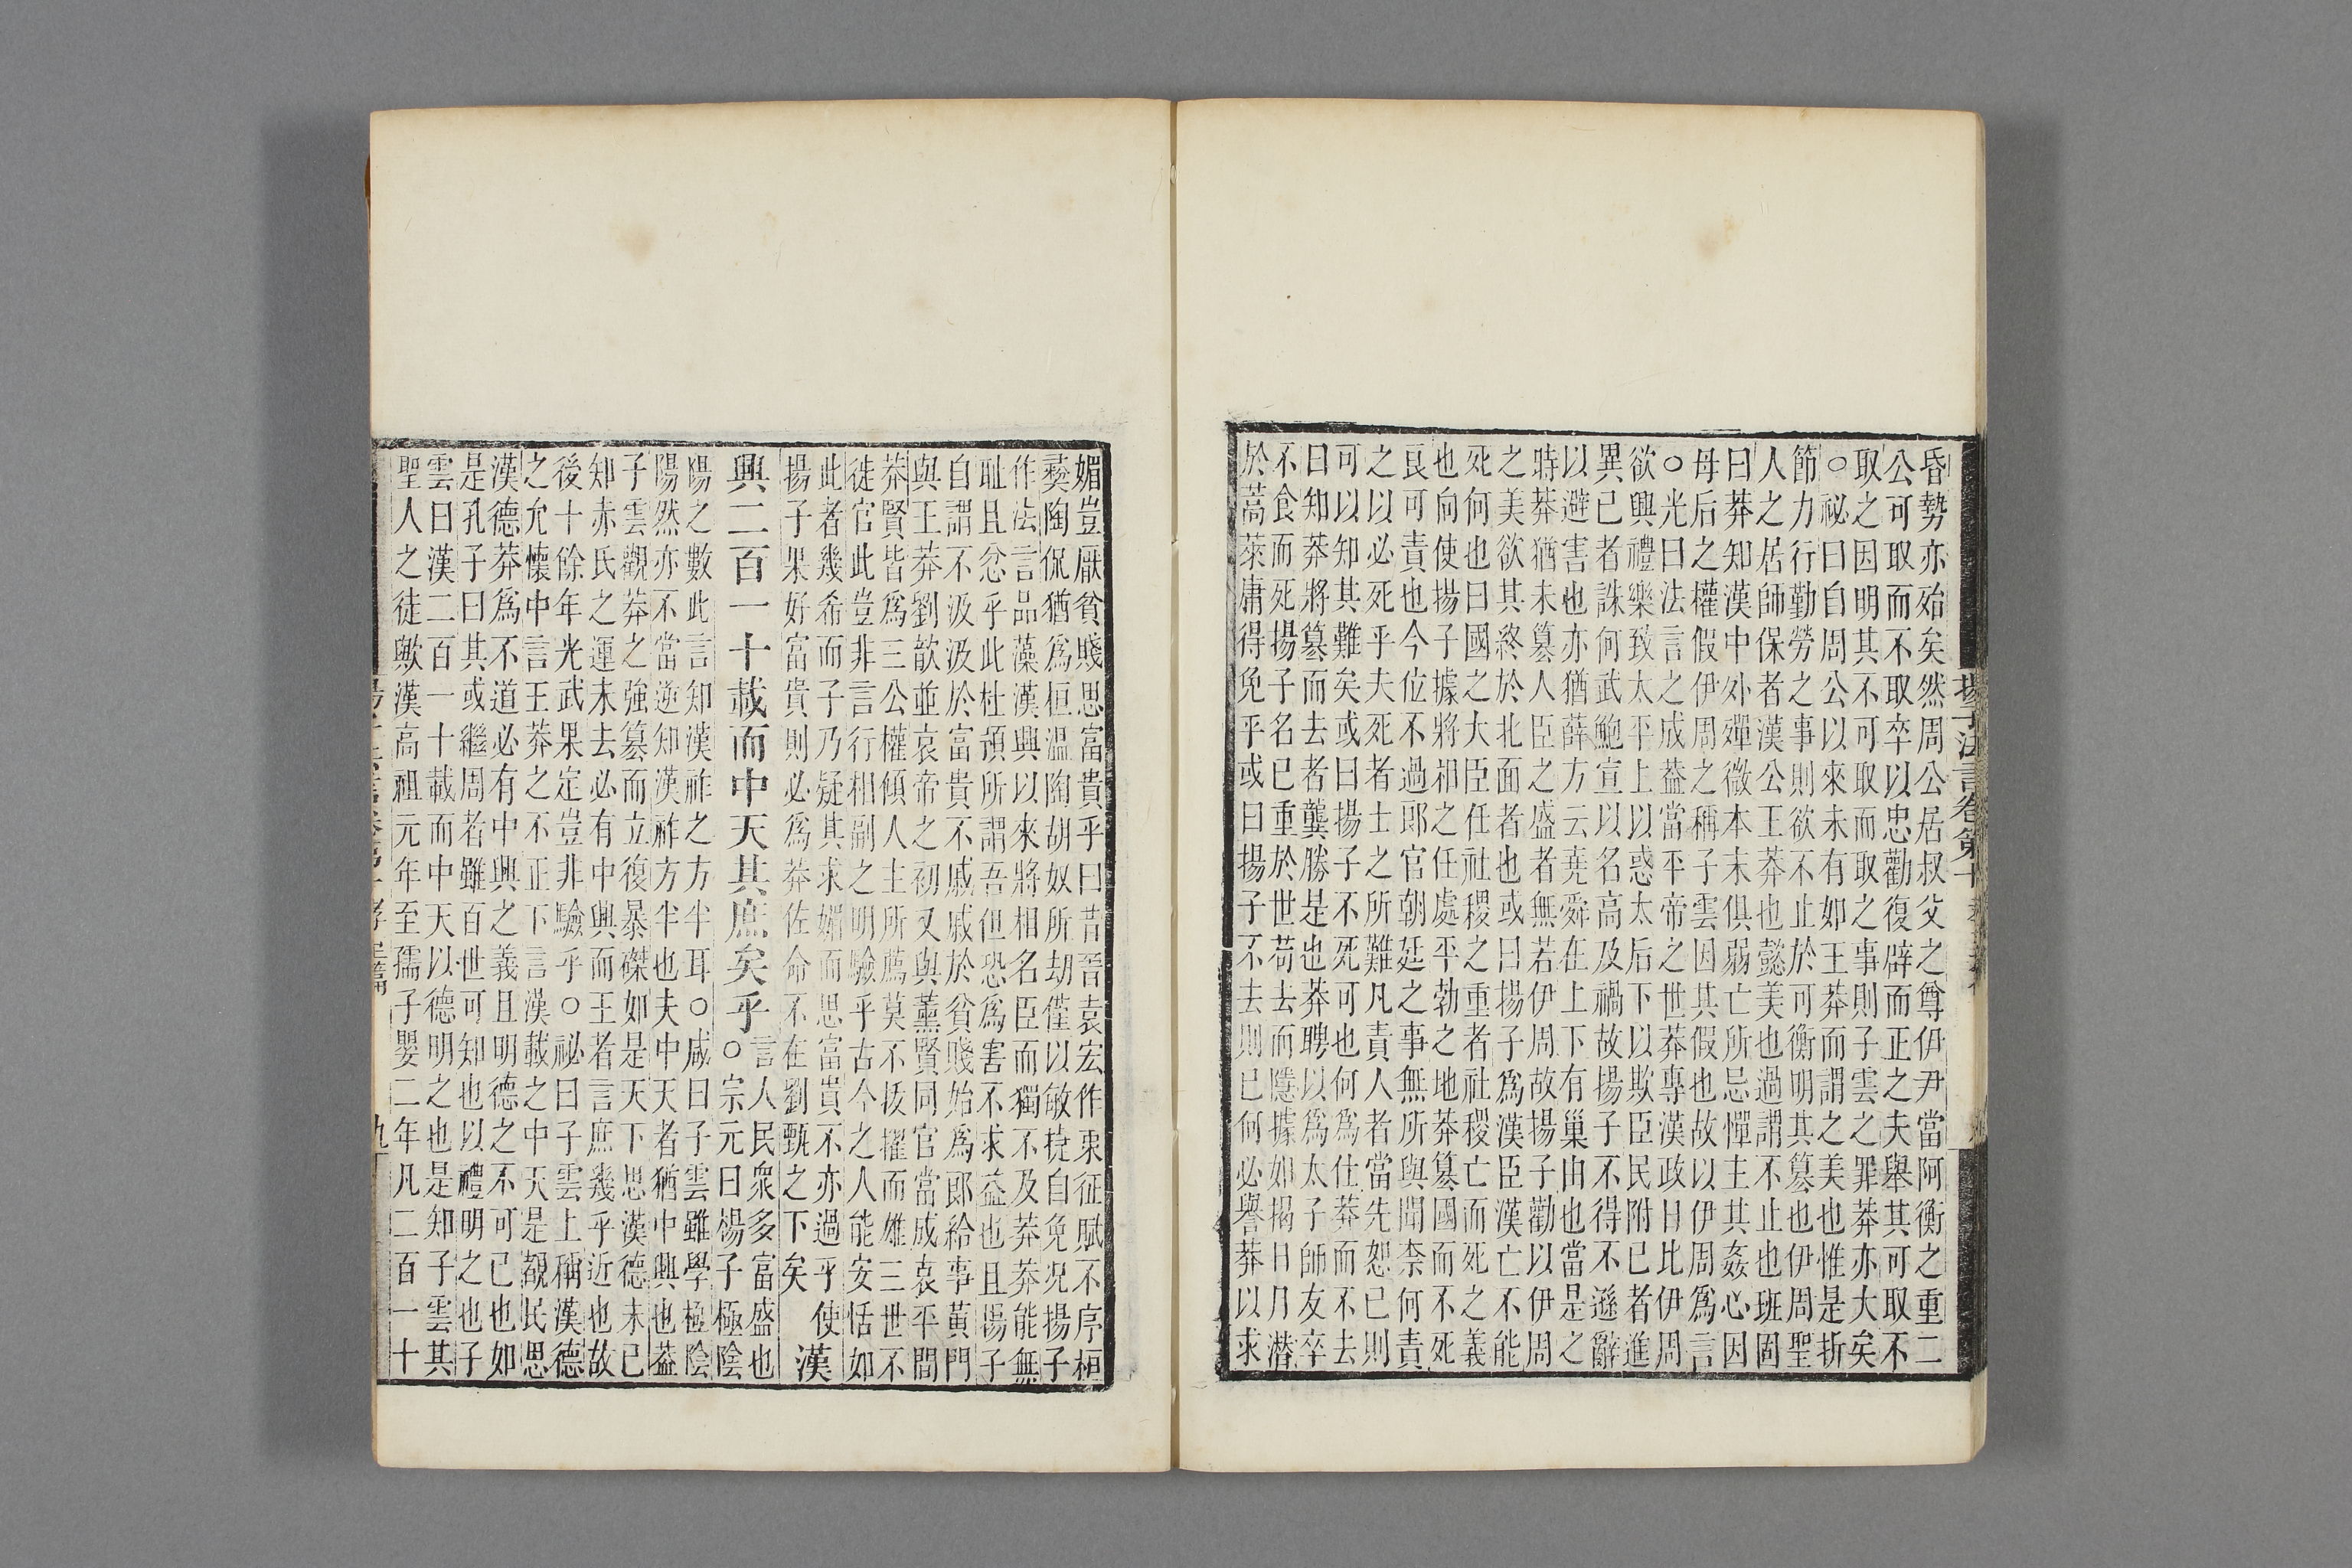 揚子法言卷第十
昏勢亦殆矣然周公居叔父之尊伊尹當阿衡之重二
公可取而不取卒以忠勸復辟而正之夫舉其可取不
取之因明其不可取而取之事則子雲之罪莽亦大矣
○祕曰自周公以來未有如王莽而謂之美也惟是折
節力行勤勞之事則欲不止於可衡明其篡也伊周聖
人之居師保者漢公王莽也懿美也過謂不止也班固
曰莽知漢中外殫微本末俱弱亡所忌憚主其姦心因
母后之權假伊周之稱子雲因其假也故以伊周爲言
○光曰法言之成葢當平帝之世莽專漢政日比伊周
欲興禮樂致太平上以惑太后下以欺臣民附已者進
異已者誅何武鮑宣以名高及禍故揚子不得不遜辭
以避害也亦猶薛方云堯舜在上下有巢由也當是之
時莽猶未篡人臣之盛者無若伊周故揚子勸以伊周
之美欲其終於北面者也或曰揚子爲漢臣漢亡不能
死何也曰國之大臣任社稷之重者社稷亡而死之義
也向使揚子據將相之任處平勃之地莽篡國而不死
良可責也今位不過郎官朝廷之事無所與聞柰何責
之以必死乎夫死者士之所難凡責人者當先恕已則
可以知其難矣或曰揚子不死可也何爲仕莽而不去
曰知莽將篡而去者龔勝是也莽聘以爲太子師友卒
不食而死揚子名已重於世苟去而隱據如揭日月潛
於蒿萊庸得免乎或曰揚子不去則已何必譽莽以求
媚豈厭貧賤思富貴乎曰昔晉袁宏作東征賦不序桓
彞陶侃猶爲桓溫陶胡奴所劫僅以敏捷自免况揚子
作法言品藻漢興以來將相名臣而獨不及莽莽能無
耻且忿乎此杜預所謂吾但恐爲害不求益也且揚子
自謂不汲汲於富貴不戚戚於貧賤始爲郎給事黃門
與王莽劉歆並哀帝之初又與董賢同官當成哀平間
莽賢皆爲三公權傾人主所薦莫不拔擢而雄三世不
徙官此豈非言行相副之明驗乎古今之人能安恬如
此者幾希而子乃疑其求媚而思富貴不亦過乎使
揚子果好富貴則必爲莽佐命不在劉甄之下矣
漢
興二百一十載而中天其庶矣乎
言人民衆多富盛也
○宗元曰楊子極陰
陽之數此言知漢祚之方半耳○咸曰子雲雖學極陰
陽然亦不當逆知漢祚方半也夫中天者猶中興也葢
子雲觀莽之強篡而立復暴磔如是天下思漢德未已
知赤氏之運未去必有中興而王者言庶幾乎近也故
後十餘年光武果定豈非驗乎○祕曰子雲上稱漢德
之允懷中言王莽之不正下言漢載之中天是覩民思
漢德莽爲不道必有中興之義且明德之不可已也如
是孔子曰其或繼周者雖百世可知也以禮明之也子
雲曰漢二百一十載而中天以德明之也是知子雲其
聖人之徒歟漢高祖元年至孺子嬰二年凡二百一十